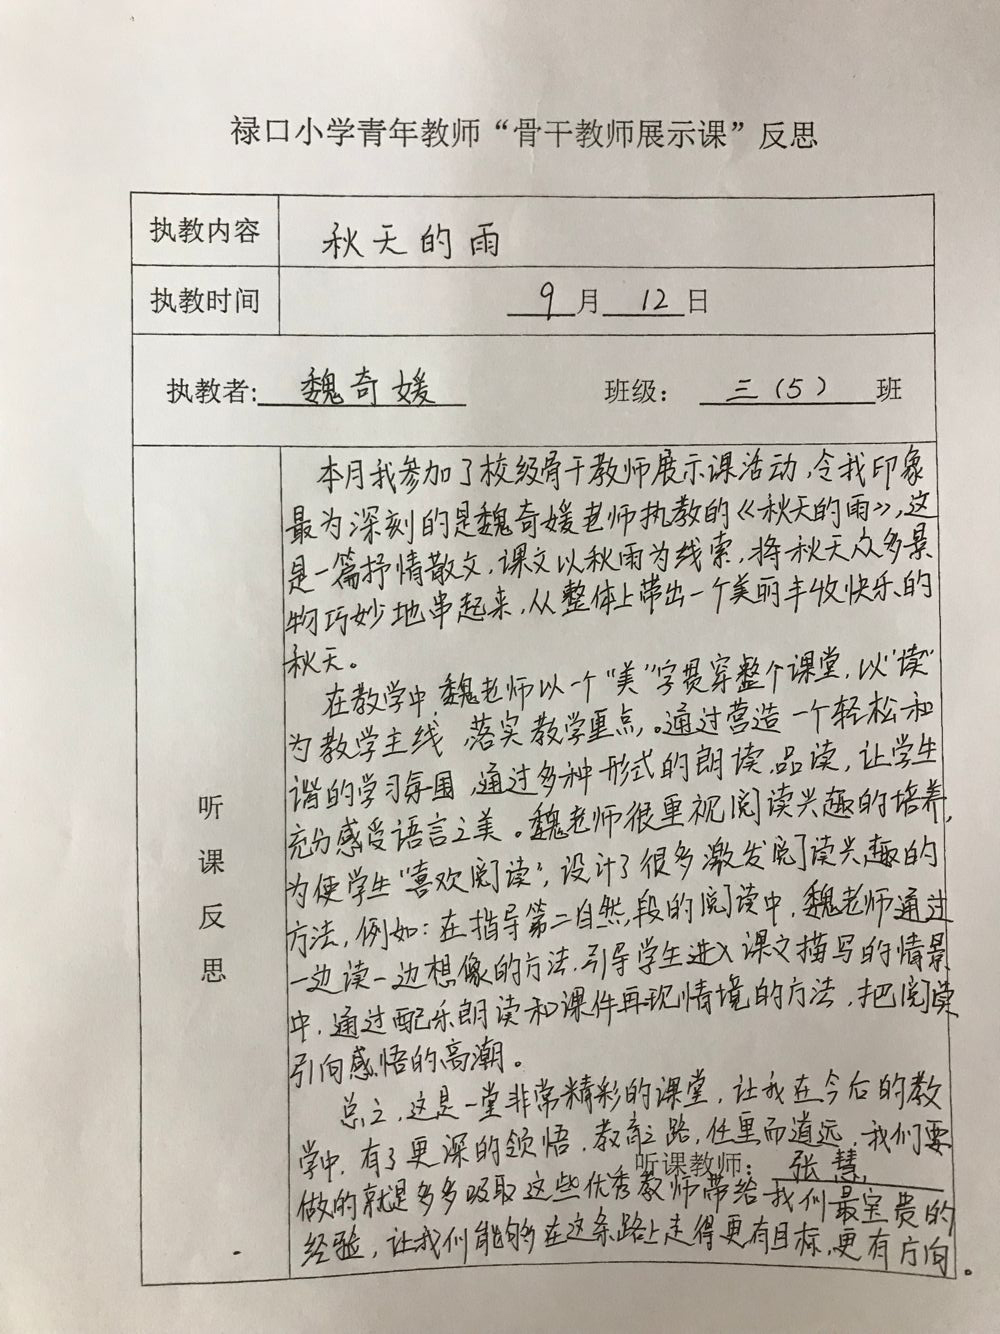 禄口小学青年教师“骨干教师展示课”反思
执教内容 秋天的雨
执教时间 9月12日
执教者: 魏奇媛 班级: 三(5)班
听课反思
本月我参加了校级骨干教师展示课活动,令我印象
最为深刻的是魏奇媛老师执教的《秋天的雨》,这
是一篇抒情散文,课文以秋雨为线索,将秋天众多景
物巧妙地串起来,从整体上带出一个美丽丰收快乐的
秋天。
在教学中,魏老师以一个“美”字贯穿整个课堂,以“读”
为教学主线,落实教学重点,。通过营造一个轻松和
谐的学习氛围,通过多种形式的朗读,品读,让学生
充分感受语言之美。魏老师很重视阅读兴趣的培养,
为使学生“喜欢阅读”,设计了很多激发阅读兴趣的
方法,例如:在指导第二自然段的阅读中,魏老师通过
一边读一边想像的方法,引导学生进入课文描写的情景
中,通过配乐朗读和课件再现情境的方法,把阅读
引向感悟的高潮。
总之,这是一堂非常精彩的课堂,让我在今后的教
学中,有了更深的领悟,教育之路,任重而道远,我们要
听课教师: 张慧
做的就是多多吸取这些优秀教师带给我们最宝贵的
经验,让我们能够在这条路上走得更有目标,更有方向。